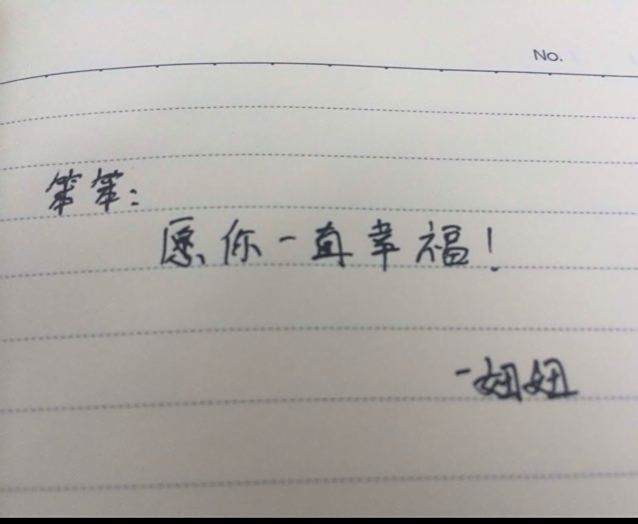 No.
笨笨:
愿你一直幸福!
-妞妞